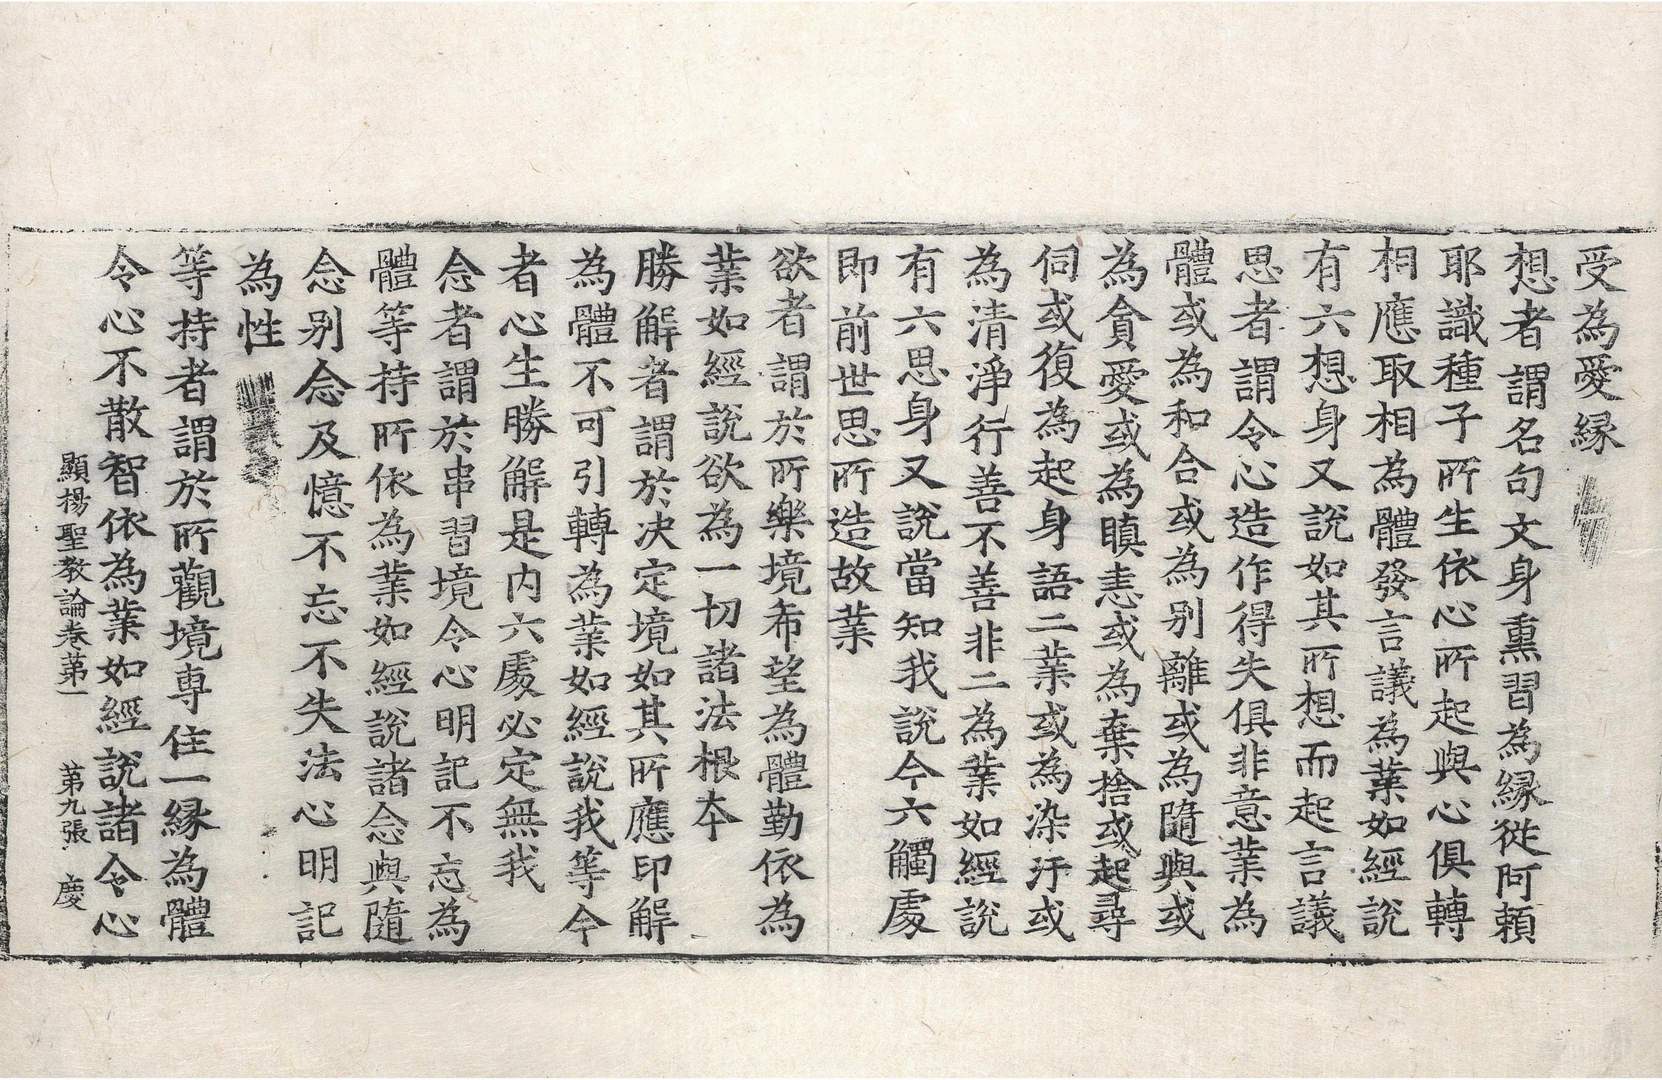 受為愛縁
想者謂名句文身熏習為縁從阿頼
耶識種子所生依心所起與心俱轉
相應取相為體發言議為業如經說
有六想身又說如其所想而起言議
思者謂令心造作得失俱非意業為
體或為和合或為别離或為隨與或
為貪愛或為瞋恚或為棄捨或起尋
伺或復為起身語二業或為染汙或
為清淨行善不善非二為業如經說
有六思身又說當知我說今六觸處
即前世思所造故業
欲者謂於所樂境希望為體勤依為
業如經說欲為一切諸法根本
勝解者謂於决定境如其所應印解
為體不可引轉為業如經說我等今
者心生勝解是内六處必定無我
念者謂於串習境令心明記不忘為
體等持所依為業如經說諸念與隨
念别念及憶不忘不失法心明記
為性
等持者謂於所觀境専住一縁為體
令心不散智依為業如經說諸令心
顯揚聖教論卷第一 第九張 慶